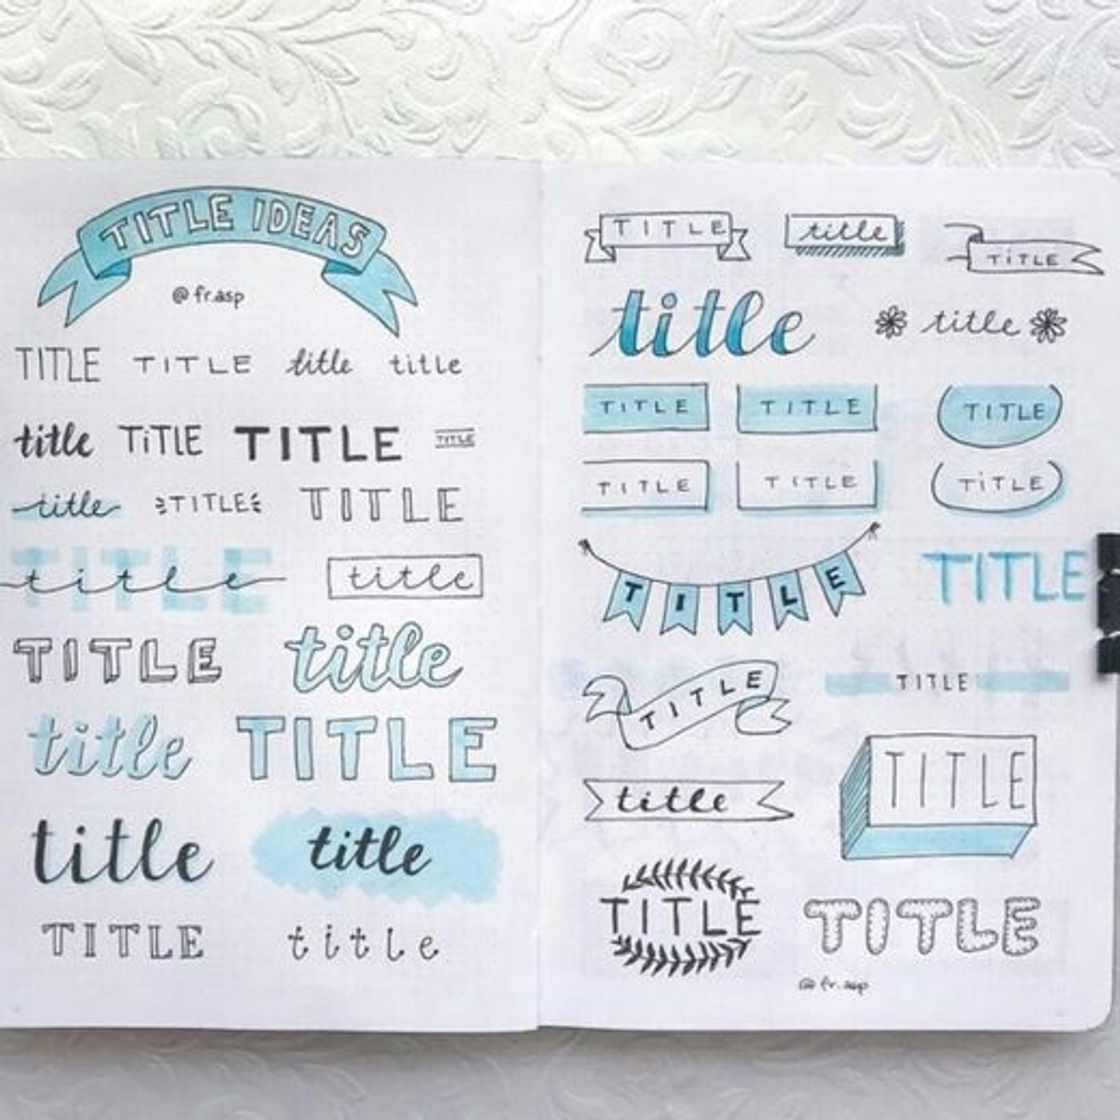 TITLE IDEAS
@fr.asp
TITLE TITLE title title
title TiTLE TITLE TITLE
title TITLE TITLE
TITLE
title title
TITLE title
title TITLE
title title
TITLE title
TITLE title TiTLE
title title
TITLE TITLE TITLE
TITLE TITLE TiTLE
TITLE TITLE
TITLE TITLE
title TITLE
TITLE TITLE
@fr.asp